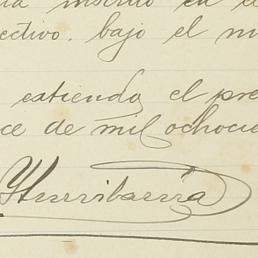 inscrito en el
ectivo. bajo el nú
extiendo el pre
ce de mil ochocie
Yturribarría